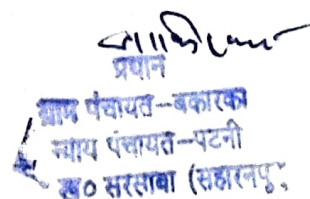 प्रधान
ग्राम पंचायत–बकारका
न्याय पंचायत–पटनी
ख० सरसावा (सहारनपु